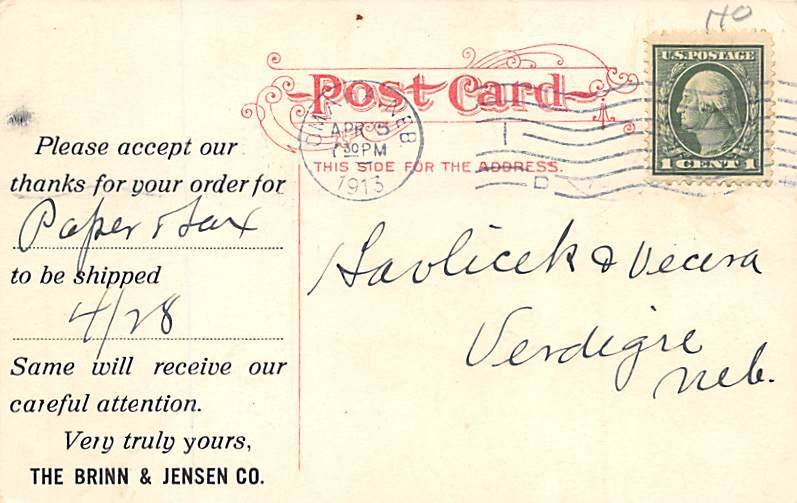 HO
U.S. POSTAGE
1 CENT 1
Post Card
OMAHA NEB
APR 5
30 PM
1913
THIS SIDE FOR THE ADDRESS.
Please accept our
thanks for your order for
Paper &
to be shipped
4/28
Same will receive our
careful attention.
Very truly yours,
THE BRINN & JENSEN CO.
Havlicek & Vecera
Verdigre
Neb.